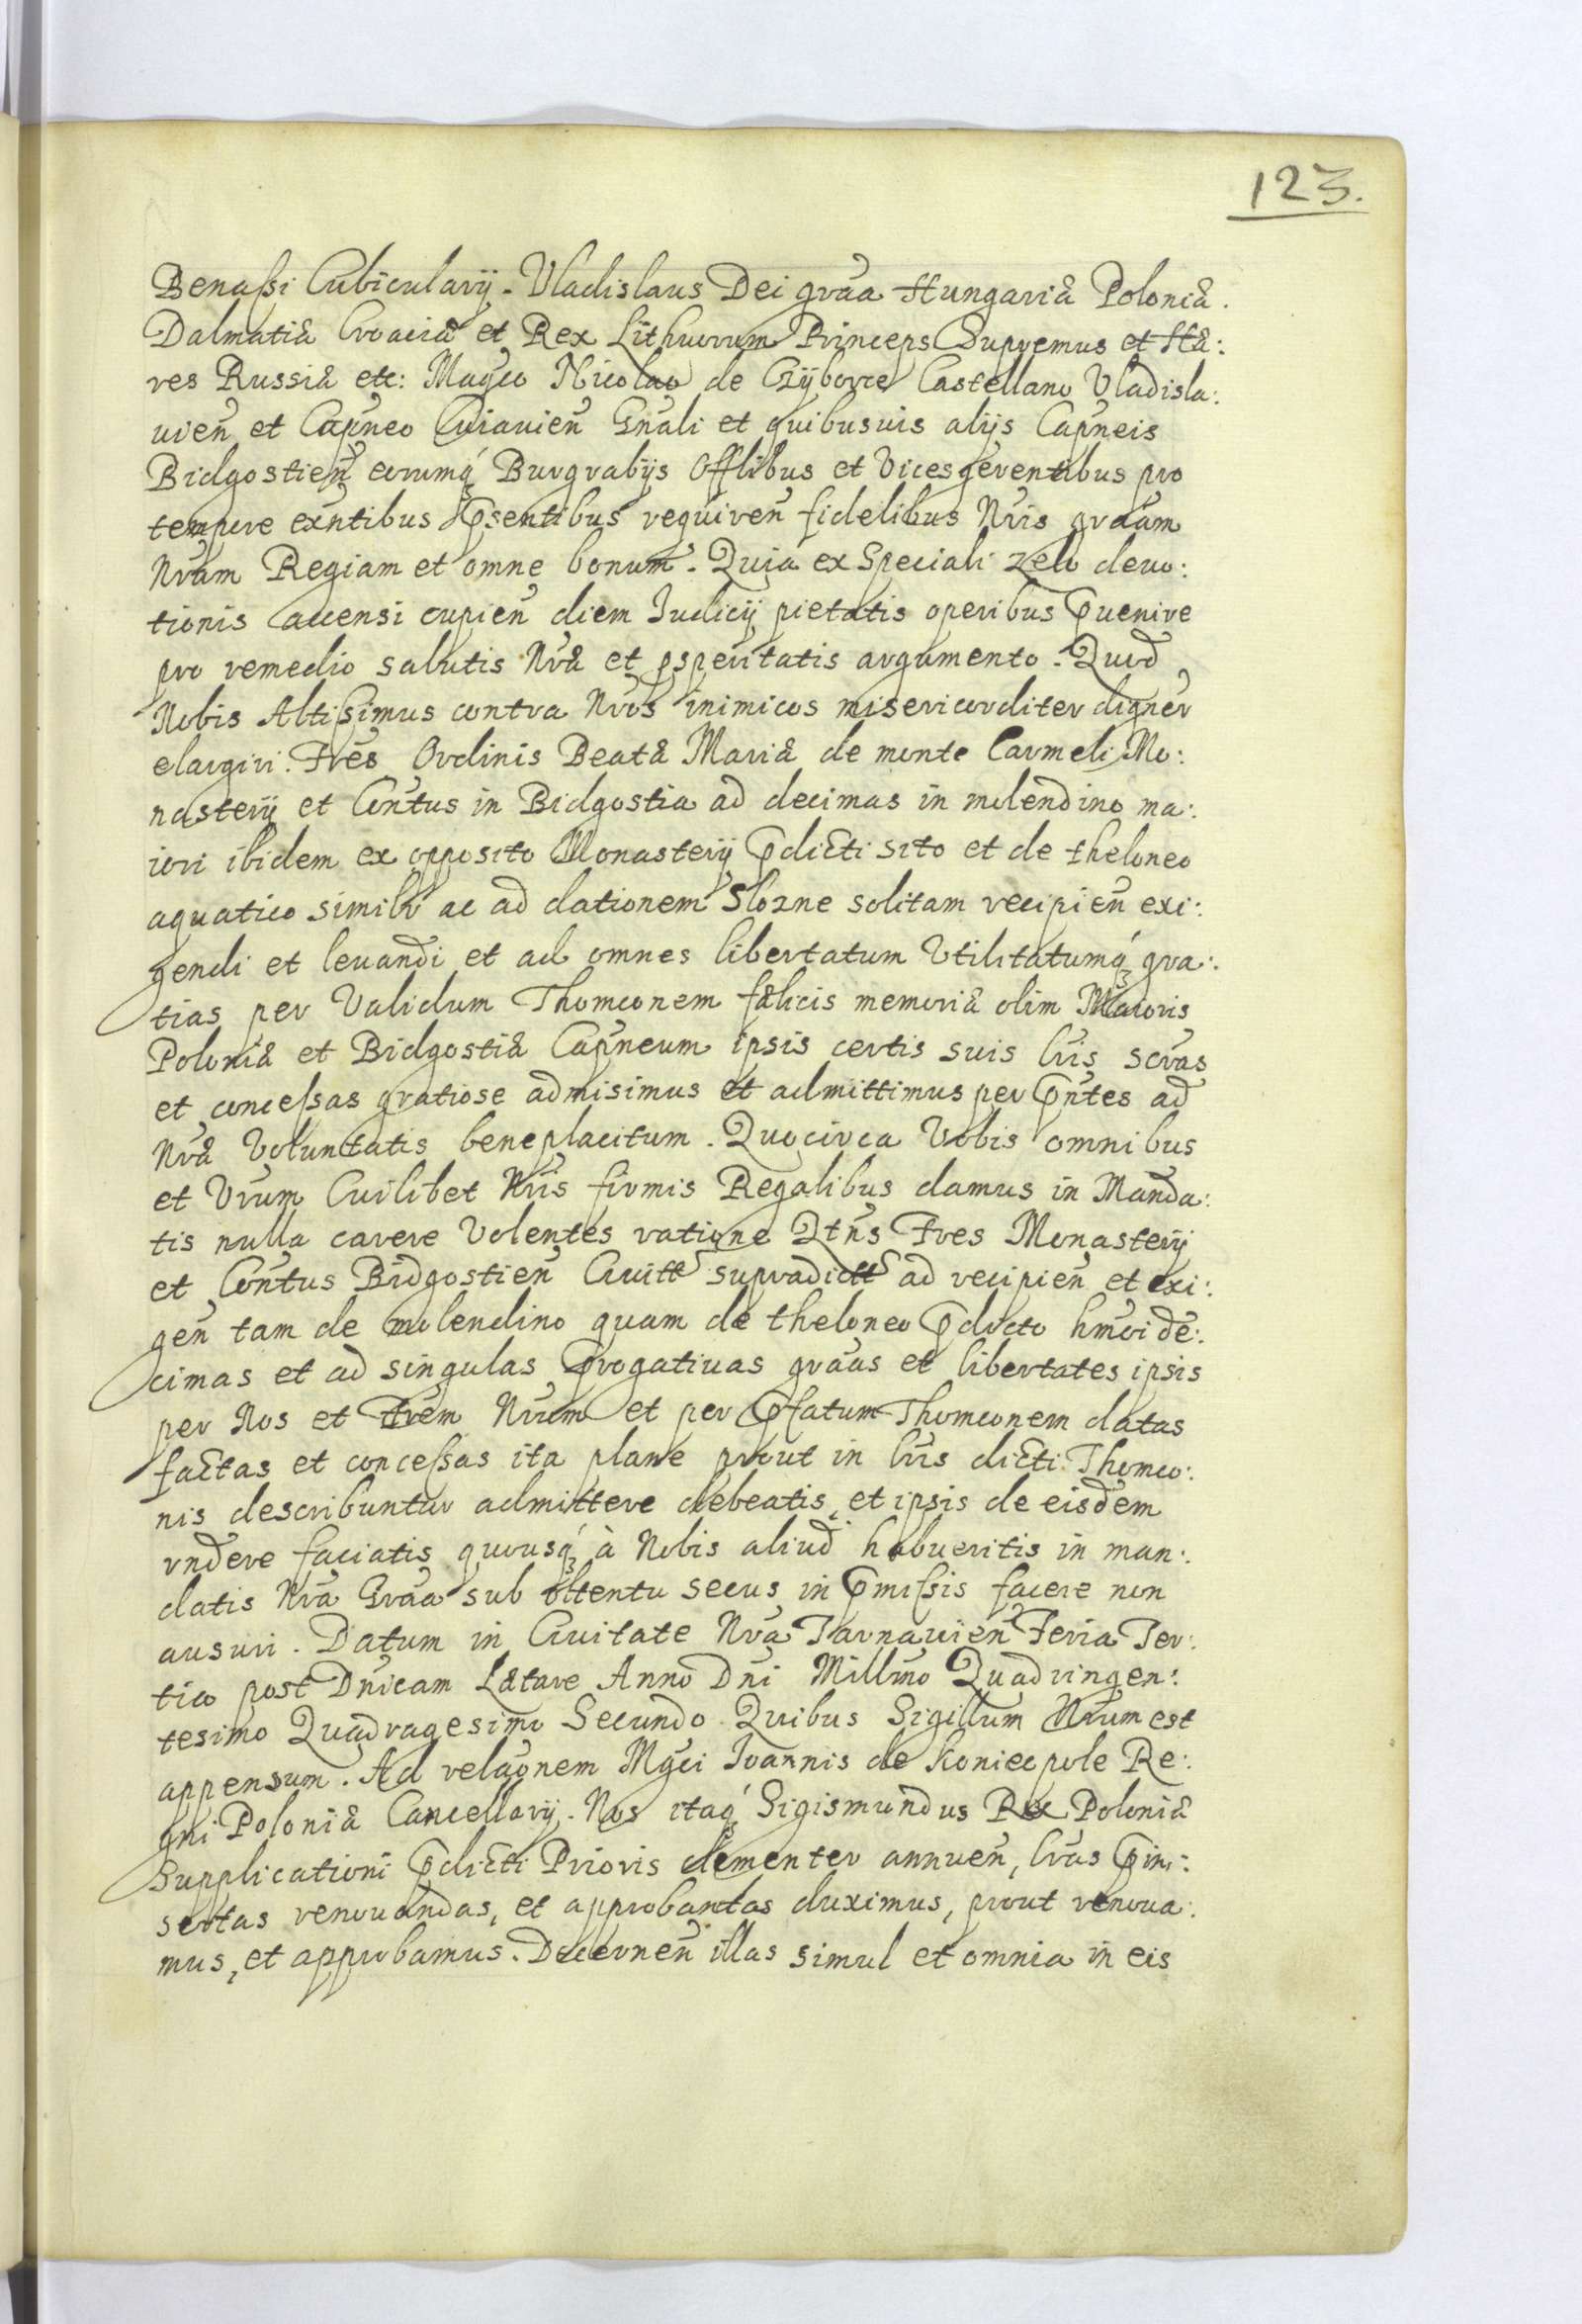 123.
Benaſsi Cubicularij. Vladislaus Dei gr̃aa Hungariæ Poloniæ.
Dalmatiæ Croaciæ et Rex Lithuorum Princeps Supremus et Hæ:
res Russiæ etc: Magco Nicolao de Czÿborze Castellano Vladisla:
uien̄ et Capñeo Cuiauien̄ Gnãli et quibusuis alijs Capñeis
Bidgostien̄ eorumq́ꝫ Burgrabijs Offlibus et Vicesgerentibus pro
tempore exñtibus p̄sentibus requiren̄ fidelibus Nr̃is gr̃aam
Nr̃am Regiam et omne bonum. Quia ex Speciali zelo deuo:
tionis accensi cupien̄ diem Iudicij pietatis operibus p̄uenire
pro remedio salutis Nr̃æ et ꝓsperitatis argumento. Quod
Nobis Altiſsimus contra Nr̃os inimicos misericorditer digner
elargiri. Fr̃es Ordinis Beatæ Mariæ de monte Carmeli Mo:
nasterij et Con̄tus in Bidgostia ad decimas in molendino ma:
iori ibidem ex opposito Monasterij p̄dicti sito et de theloneo
aquatico similr̃ ac ad dationem Slozne solitam recipien̄ exi:
gendi et leuandi et ad omnes libertatum Vtilitatumq́ꝫ gra:
tias per Validum Thomconem fælicis memoriæ olim Maioris
Poloniæ et Bidgostiæ Capñeum ipsis certis suis lr̃is scr̃as
et conceſsas gratiose admisimus et admittimus per p̄ntes ad
Nr̃æ Voluntatis beneplacitum. Quocirca Vobis omnibus
et Vr̃um Cuilibet Nr̃is firmis Regalibus damus in Manda:
tis nulla carere Volentes ratione Qtñs Fr̃es Monasterij
et Con̄tus Bidgostien̄ Ciuitt supradictt ad recipien̄ et exi:
gen̄ tam de molendino quam de theloneo p̄dicto hm̃oi de:
cimas et ad singulas p̄rogatiuas gr̃aas et libertates ipsis
per Nos et Fr̃em Nr̃um et per p̄fatum Thomconem datas
factas et conceſsas ita plane prout in lr̃is dicti Thomco:
nis describuntur admittere debeatis, et ipsis de eisdem
rñdere faciatis quousq́ꝫ à Nobis aliud habueritis in man:
datis Nr̃a Gr̃aa sub obtentu secus in p̄miſsis facere non
ausuri. Datum in Ciuitate Nr̃a Tarnauien̄ Feria Ter:
tia post Dn̄icam Lætare Anno Dn̄i Millmo Quadringen:
tesimo Quadragesimo Secundo. Quibus Sigillum Nr̃um est
appensum. Ad relaõnem Mgci Ioannis de Koniecpole Re:
gni Poloniæ Cancellarij. Nos itaq́ꝫ Sigismundus Rex Poloniæ
Supplicationi p̄dicti Prioris clementer annuen̄, lr̃as p̄in:
sertas renouandas, et approbantas duximus, prout renoua:
mus, et approbamus. Decernen̄ illas simul et omnia in eis